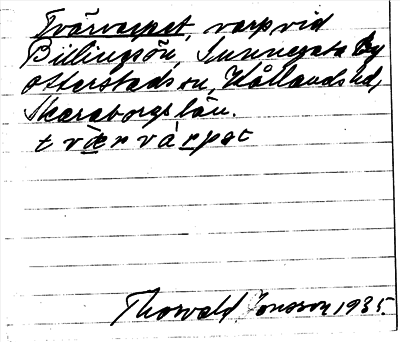 Tvärvarpet, varp vid
Billingsön, Sunnegata by
Otterstads sn, Kållands hd,
Skaraborgs län.
t væ r v à r p e t
Thorvald Jonsson 1935.